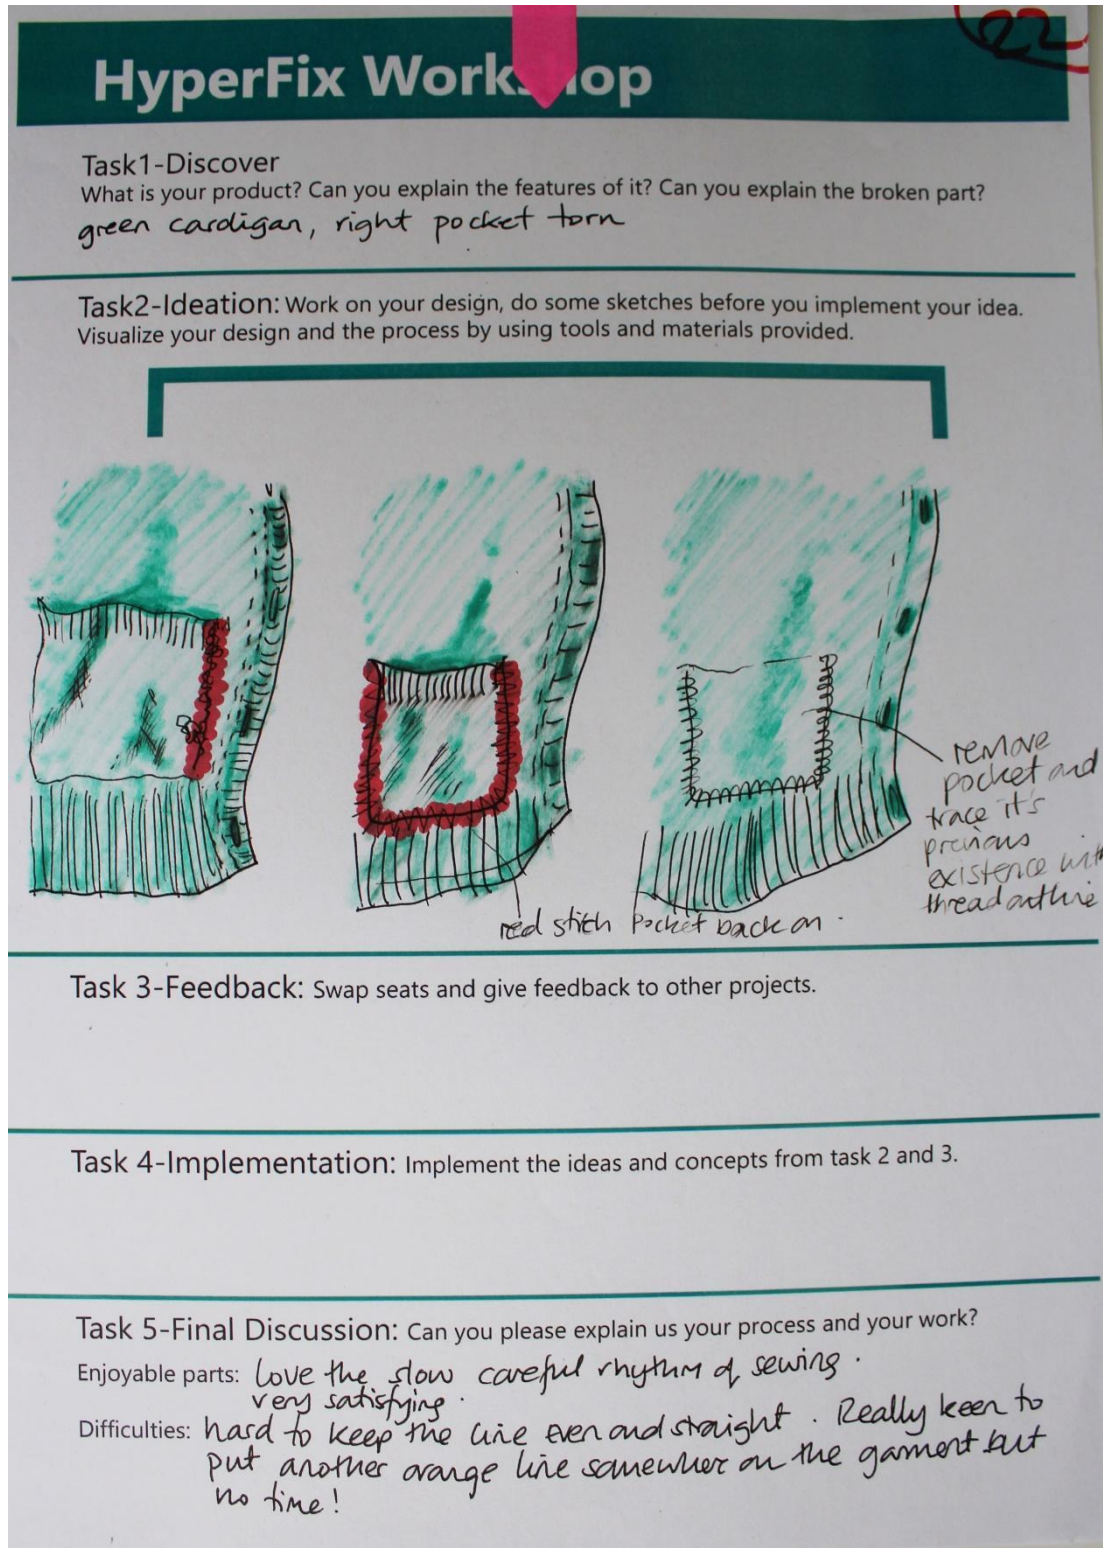 22
HyperFix Workshop
Task1-Discover
What is your product? Can you explain the features of it? Can you explain the broken part?
green cardigan, right pocket torn
Task2-Ideation: Work on your design, do some sketches before you implement your idea.
Visualize your design and the process by using tools and materials provided.
remove
pocket and
trace it's
previous
existence with
thread outline
red stitch Pocket back on.
Task 3-Feedback: Swap seats and give feedback to other projects.
Task 4-Implementation: Implement the ideas and concepts from task 2 and 3.
Task 5-Final Discussion: Can you please explain us your process and your work?
Enjoyable parts: Love the slow careful rhythm of sewing.
very satisfying.
Difficulties: hard to keep the line even and straight. Really keen to
put another orange line somewher on the garment but
no time!